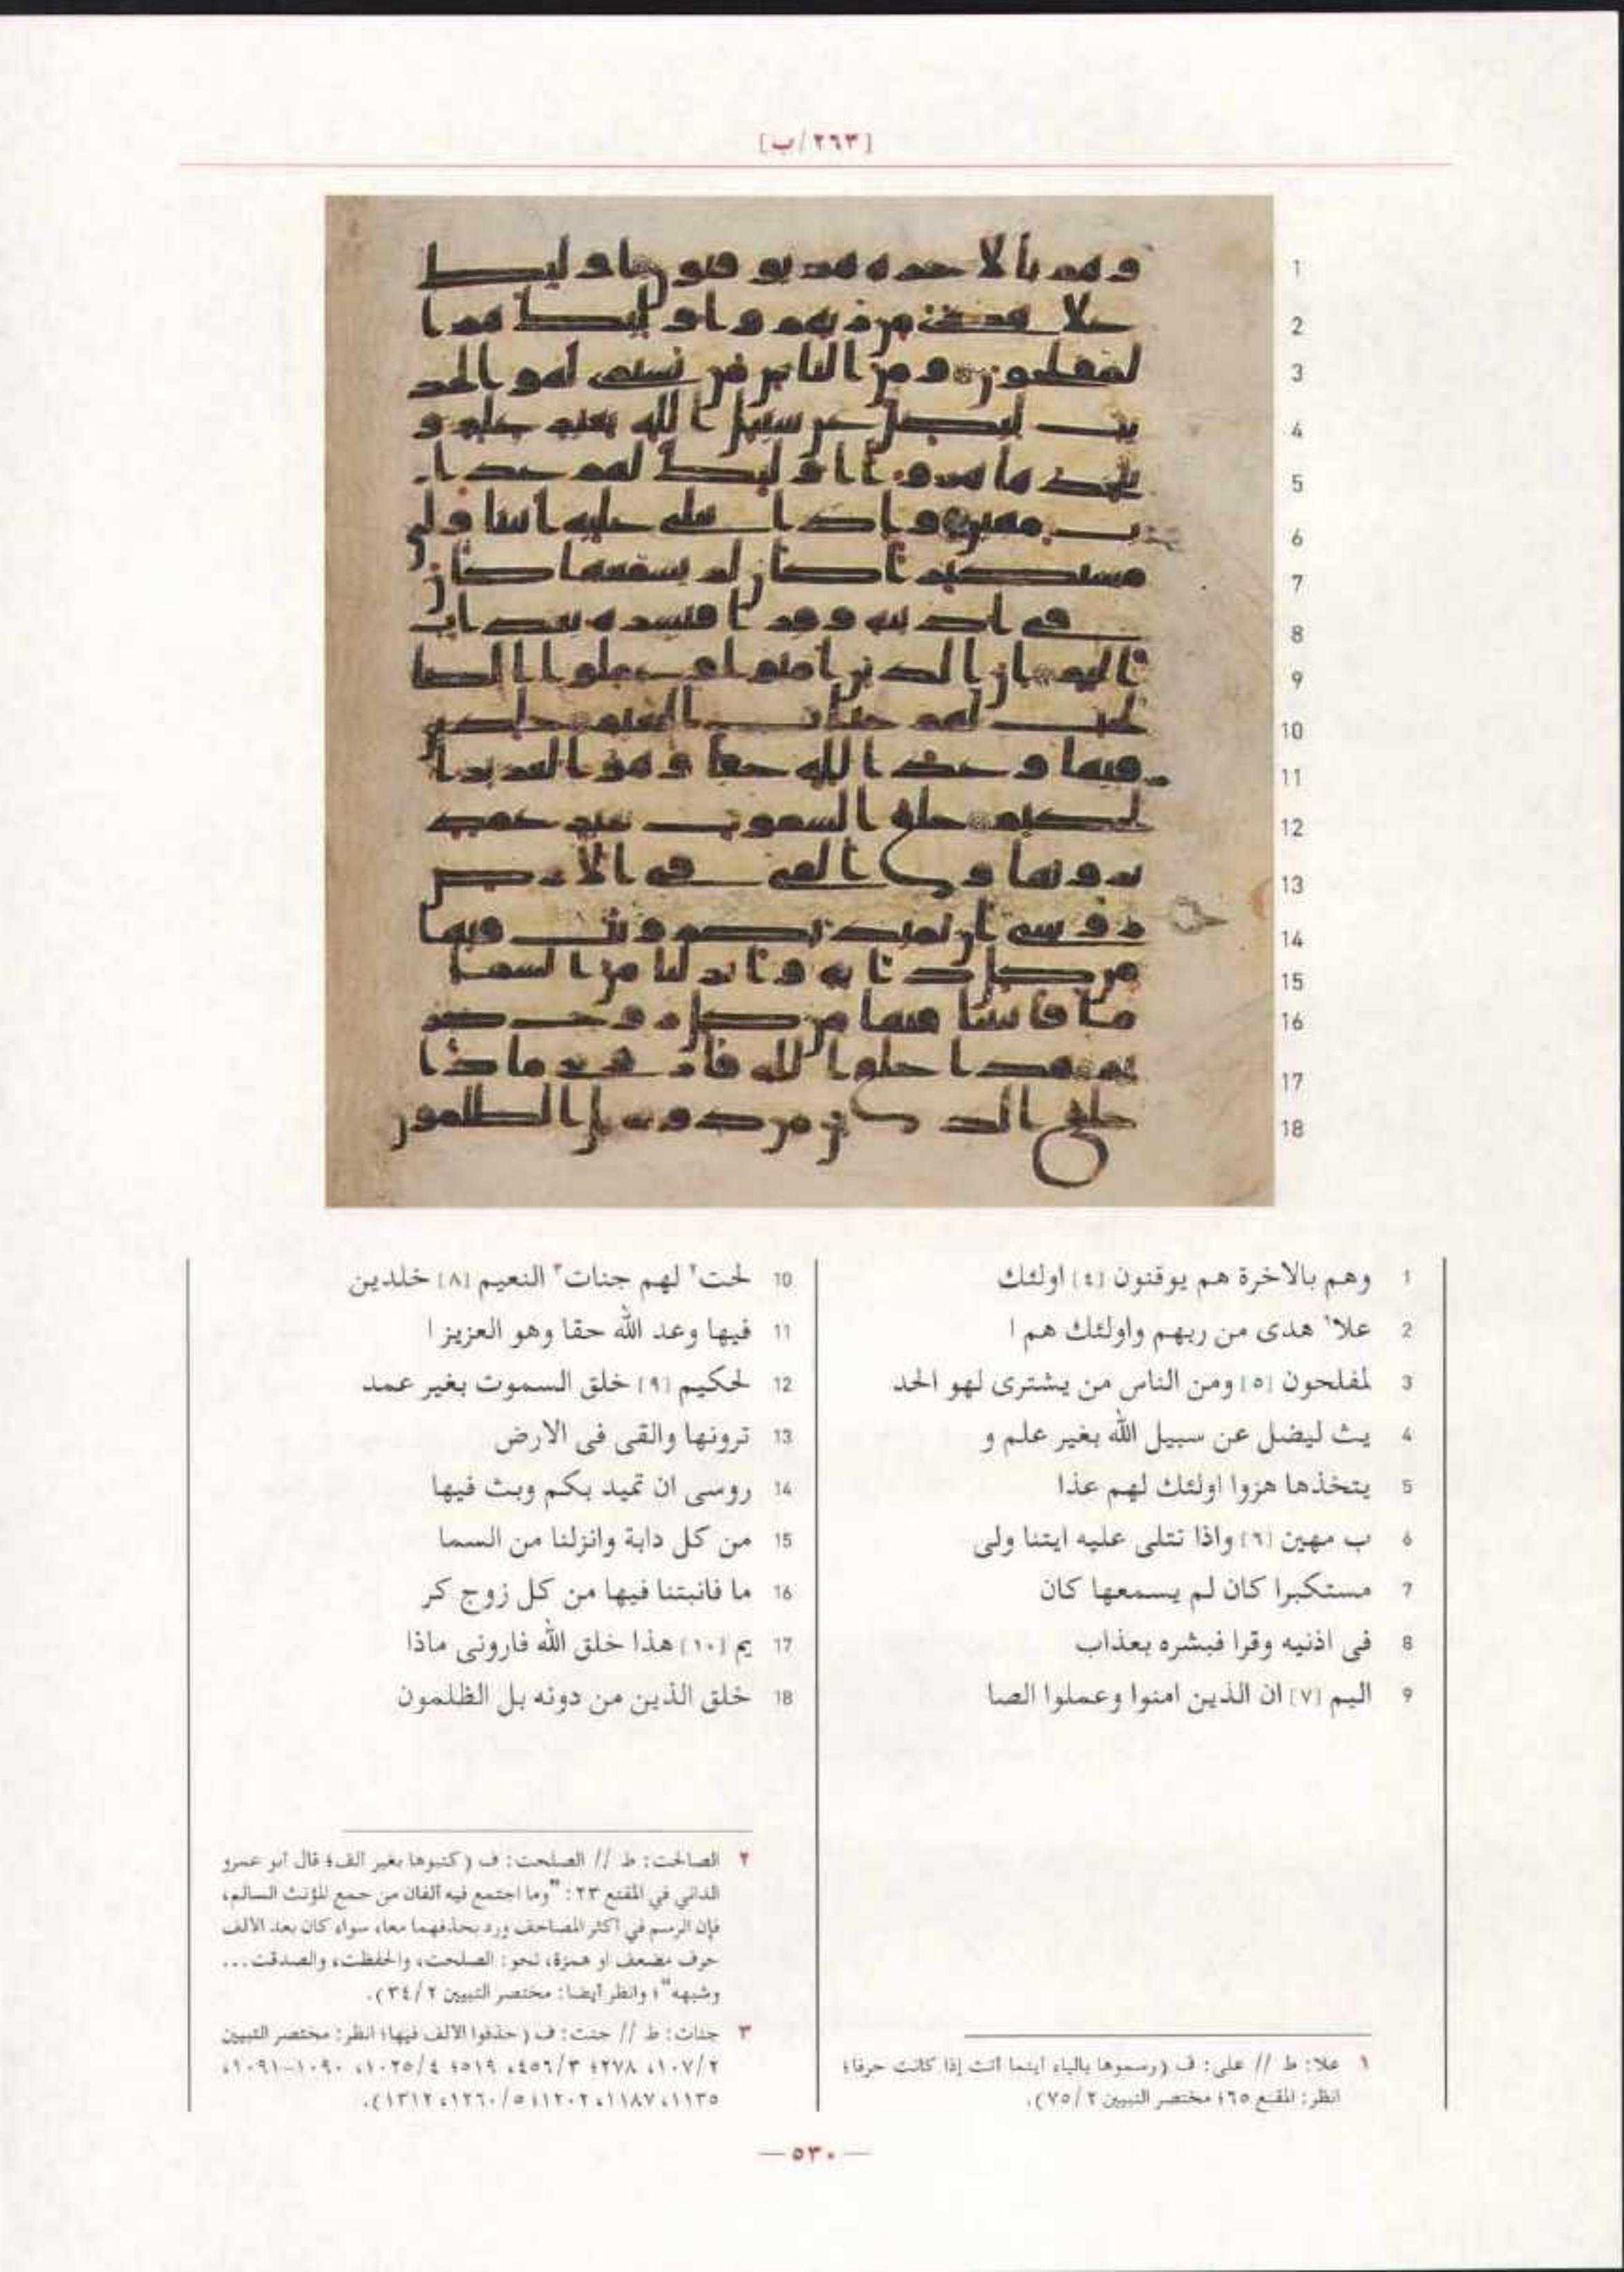 [٢٦٣/ب]
1 وهم بالاخرة هم يوقنون [٤] اولئك
2 علا١ هدى من ربهم واولئك هم ا
3 لمفلحون [٥] ومن الناس من يشترى لهو الحد
4 يث ليضل عن سبيل الله بغير علم و
5 يتخذها هزوا اولئك لهم عذا
6 ب مهين [٦] واذا تتلى عليه ايتنا ولى
7 مستكبرا كان لم يسمعها كان
8 فى اذنيه وقرا فبشره بعذاب
9 اليم [٧] ان الذين امنوا وعملوا الصا
10 لحت٢ لهم جنات٣ النعيم [٨] خلدين
11 فيها وعد الله حقا وهو العزيز ا
12 لحكيم [٩] خلق السموت بغير عمد
13 ترونها والقى فى الارض
14 روسى ان تميد بكم وبث فيها
15 من كل دابة وانزلنا من السما
16 ما فانبتنا فيها من كل زوج كر
17 يم [١٠] هذا خلق الله فارونى ماذا
18 خلق الذين من دونه بل الظلمون
١ علا: ط // على: ف (رسموها بالياء أينما أتت إذا كانت حرفا؛
انظر: المقنع ٦٥؛ مختصر التبيين ٧٥/٢).
٢ الصالحت: ط // الصلحت: ف (كتبوها بغير ألف؛ قال أبو عمرو
الداني في المقنع ٢٣: "وما اجتمع فيه ألفان من جمع المؤنث السالم،
فإن الرسم في أكثر المصاحف ورد بحذفهما معا، سواء كان بعد الألف
حرف مضعف أو همزة، نحو: الصلحت، والحفظت، والصدقت...
وشبهه"؛ وانظر أيضا: مختصر التبيين ٣٤/٢).
٣ جنات: ط // جنت: ف (حذفوا الألف فيها؛ انظر: مختصر التبيين
١٠٧/٢، ٢٧٨؛ ٤٥٦/٣، ٥١٩؛ ١٠٢٥/٤، ١٠٩٠-١٠٩١،
١١٣٥، ١١٨٧، ١٢٠٢؛ ١٢٦٠/٥، ١٣١٢).
— ٥٣٠ —